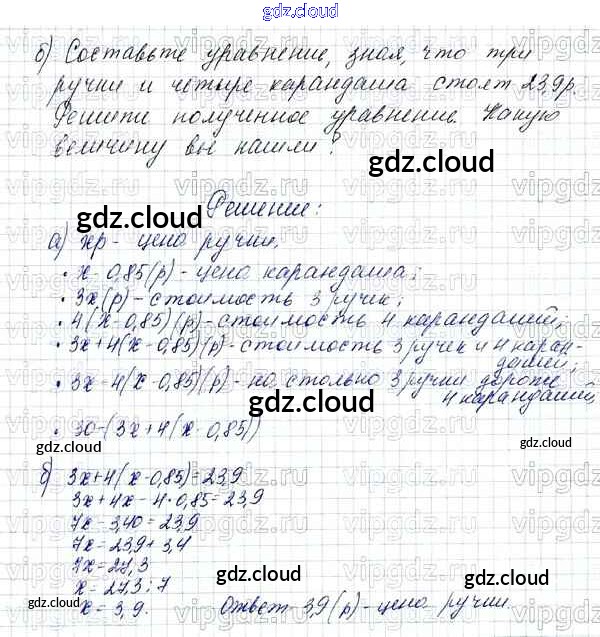 gdz.cloud
б) Составьте уравнение, зная, что три
ручки и четыре карандаша стоят 23,9р.
Решите полученное уравнение. Какую
величину вы нашли?
gdz.cloud
Решение:
gdz.cloud
а) хр - цена ручки.
• х - 0,85(р) - цена карандаша;
• 3х(р) - стоимость 3 ручек;
• 4(х-0,85)(р) - стоимость 4 карандашей;
• 3х+4(х-0,85)(р) - стоимость 3 ручек и 4 каран-
дашей;
• 3х-4(х-0,85)(р) - на столько 3 ручки дороже
4 карандашей
gdz.cloud
• 30-(3х+4(х-0,85))
gdz.cloud
gdz.cloud
б) 3х+4(х-0,85)=23,9
3х+4х-4•0,85=23,9
7х-3,40=23,9
7х=23,9+3,4
7х=27,3
х=27,3:7
х=3,9. Ответ 3,9(р) - цена ручки.
gdz.cloud
gdz.cloud
gdz.cloud
gdz.cloud
vipgdz.ru